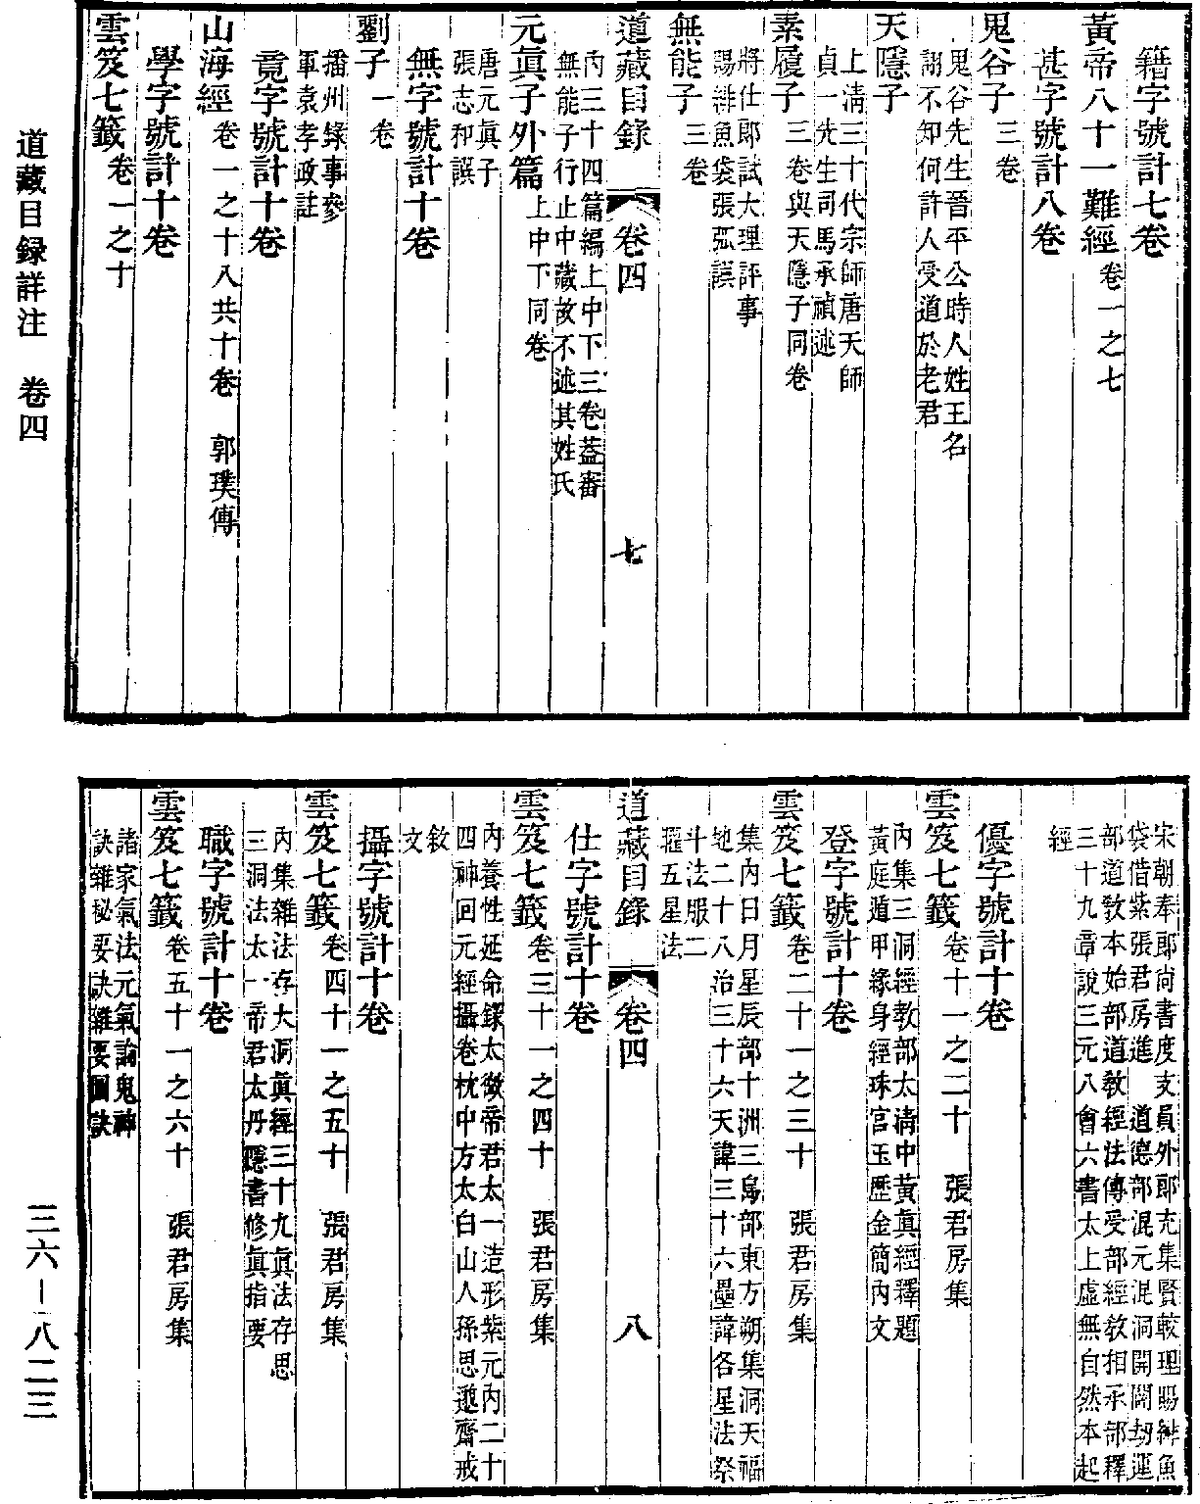 籍字號計七卷
黃帝八十一難經 卷一之七
甚字號計八卷
鬼谷子 三卷
鬼谷先生晉平公時人姓王名
詡不知何許人受道於老君
天隱子
上清三十代宗師唐天師
貞一先生司馬承禎述
素履子 三卷與天隱子同卷
將仕郎試大理評事
賜緋魚袋張弧譔
無能子 三卷
道藏目錄 卷四 七
內三十四篇編上中下三卷蓋審
無能子行止中藏故不述其姓氏
元眞子外篇 上中下同卷
唐元眞子
張志和譔
無字號計十卷
劉子 一卷
播州錄事參
軍袁孝政註
竟字號計十卷
山海經 卷一之十八共十卷 郭璞傳
學字號計十卷
雲笈七籤 卷一之十
道藏目録詳注 卷四
宋朝奉郎尚書度支員外郎充集賢較理賜緋魚
袋借紫張君房進 道德部混元混洞開闢劫運
部道敎本始部道敎經法傳受部經敎相承部釋
三十九章說三元八會六書太上虛無自然本起
經
優字號計十卷
雲笈七籤 卷十一之二十 張君房集
內集三洞經敎部太淸中黃眞經釋題
黃庭遁甲緣身經珠宮玉歷金簡內文
登字號計十卷
雲笈七籤 卷二十一之三十 張君房集
集內日月星辰部十洲三島部東方朔集洞天福
地二十八治三十六天諱三十六壘諱各星法祭
斗法服二
星五星法
道藏目錄 卷四 八
仕字號計十卷
雲笈七籤 卷三十一之四十 張君房集
內養性延命錄太微帝君太一造形紫元內二十
四神回元經攝卷枕中方太白山人孫思邈齋戒
敘
文
攝字號計十卷
雲笈七籤 卷四十一之五十 張君房集
內集雜法存大洞眞經三十九眞法存思
三洞法太一帝君太丹隱書修眞指要
職字號計十卷
雲笈七籤 卷五十一之六十 張君房集
諸家氣法元氣論鬼神
訣雜秘要訣雜要圖訣
三六—八二三